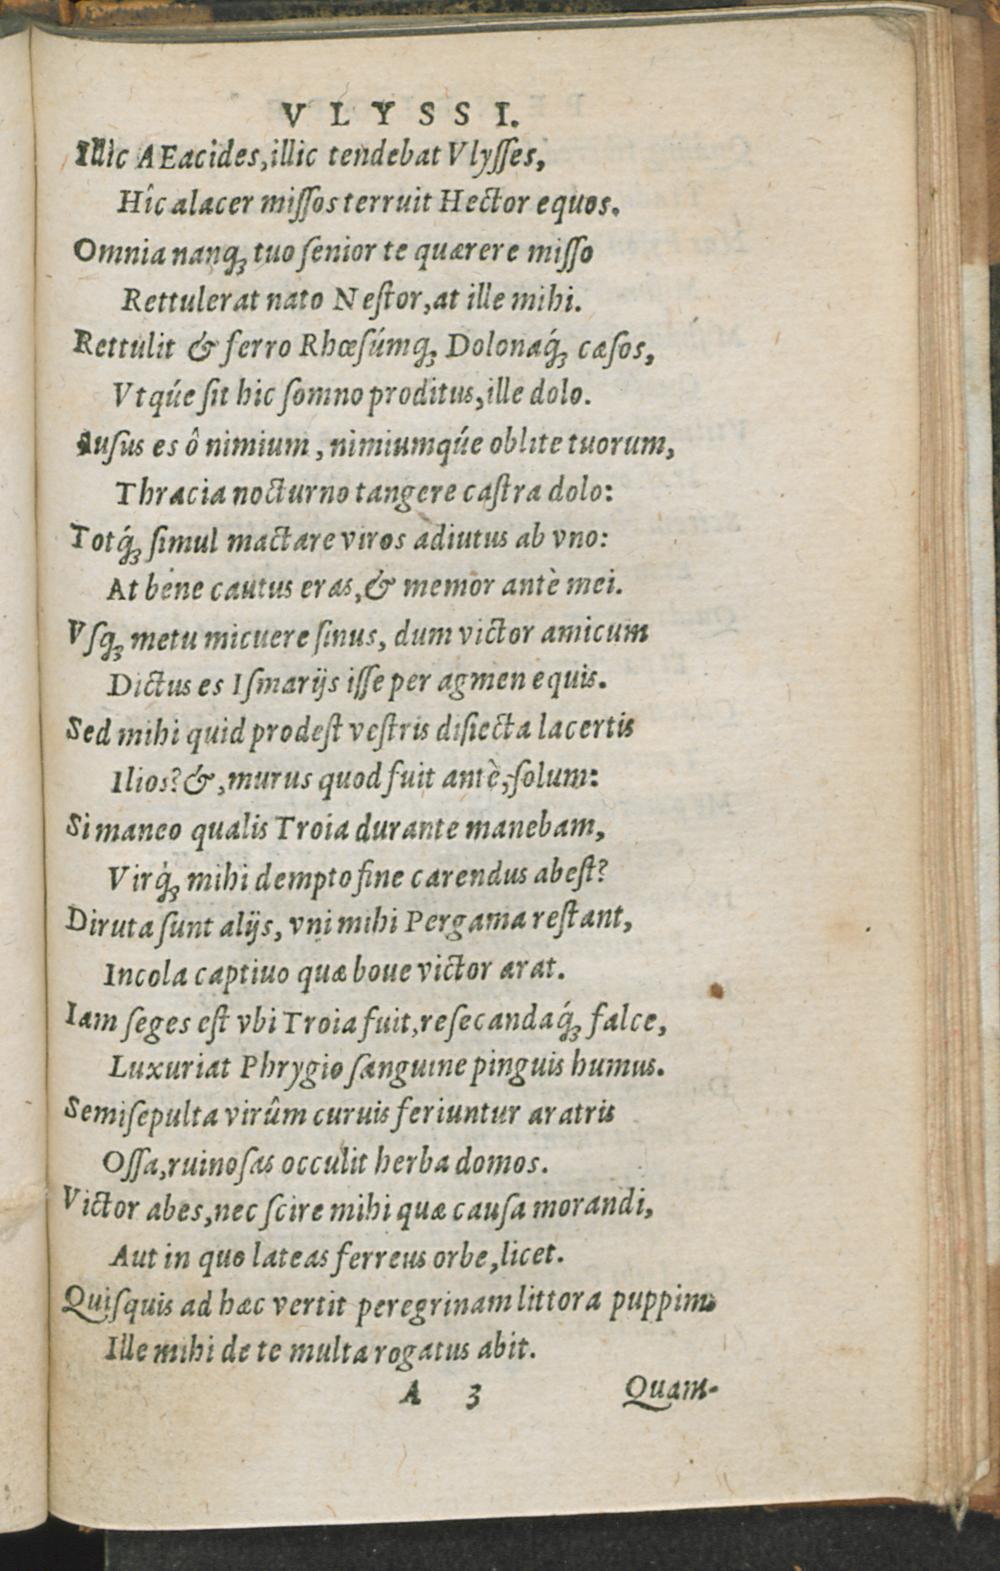 VLYSSI.
Illic AEacides, illic tendebat Vlyſſes,
Hîc alacer miſſos terruit Hector equos.
Omnia nanq́; tuo ſenior te quærere miſſo
Rettulerat nato Neſtor, at ille mihi.
Rettulit & ferro Rhœſúmq́; Dolonaq́; cæſos,
Vtqúe ſit hic ſomno proditus, ille dolo.
Auſus es ô nimium, nimiumqúe oblite tuorum,
Thracia nocturno tangere caſtra dolo:
Totq́; ſimul mactare viros adiutus ab vno:
At bene cautus eras, & memor antè mei.
Vſq; metu micuere ſinus, dum victor amicum
Dictus es Iſmarijs iſſe per agmen equis.
Sed mihi quid prodeſt veſtris diſiecta lacertis
Ilios? &, murus quod fuit antè, ſolum:
Si maneo qualis Troia durante manebam,
Virq́; mihi dempto fine carendus abeſt?
Diruta ſunt alijs, vni mihi Pergama reſtant,
Incola captiuo quæ boue victor arat.
Iam ſeges eſt vbi Troia fuit, reſecandaq́; falce,
Luxuriat Phrygio ſanguine pinguis humus.
Semiſepulta virûm curuis feriuntur aratris
Oſſa, ruinoſas occulit herba domos.
Victor abes, nec ſcire mihi quæ cauſa morandi,
Aut in quo lateas ferreus orbe, licet.
Quiſquis ad hæc vertit peregrinam littora puppim,
Ille mihi de te multa rogatus abit.
A 3 Quam-